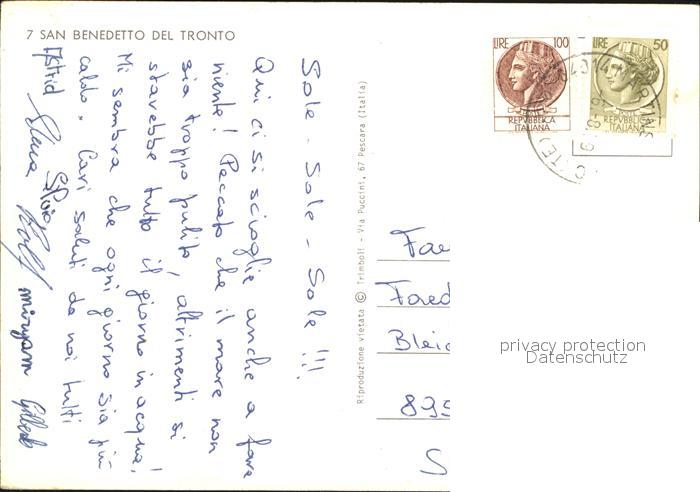 7 SAN BENEDETTO DEL TRONTO
Sole - Sole - Sole !!!
Qui ci si scioglie anche a fare
niente! Peccato che il mare non
sia troppo pulito, altrimenti si
starebbe tutto il giorno in acqua!
Mi sembra che ogni giorno sia più
caldo. Cari saluti da noi tutti
Astrid
Elena Silvio
Rolf
miryam Gilberto
Riproduzione vietata © Trimboli - Via Puccini, 67 Pescara (Italia)
LIRE 100
REPVBBLICA
ITALIANA
LIRE 50
REPVBBLICA
ITALIANA
Fae
Faed
Bleic
895
S
privacy protection
Datenschutz